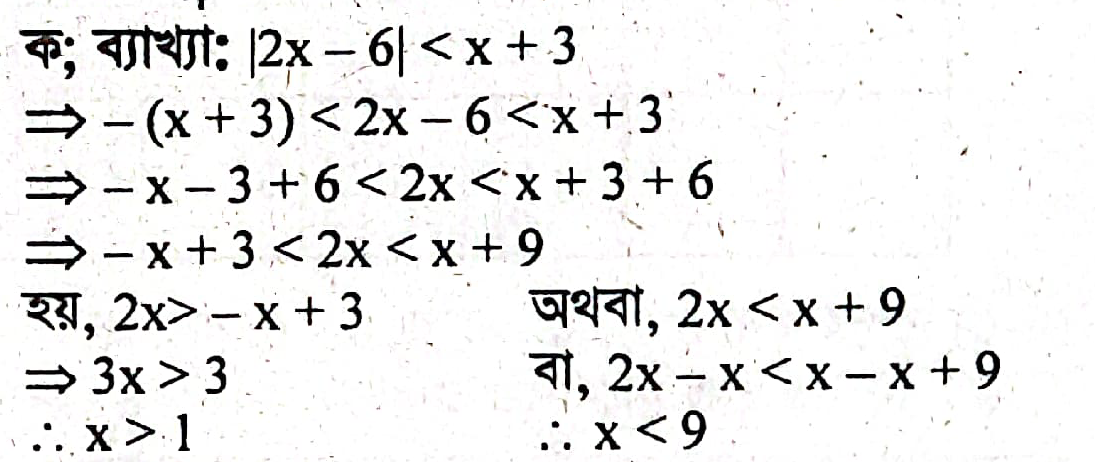 ক; ব্যাখ্যা: |2x – 6| < x + 3
⇒ – (x + 3) < 2x – 6 < x + 3
⇒ – x – 3 + 6 < 2x < x + 3 + 6
⇒ – x + 3 < 2x < x + 9
হয়, 2x> – x + 3 অথবা, 2x < x + 9
⇒ 3x > 3 বা, 2x – x < x – x + 9
∴ x > 1 ∴ x < 9